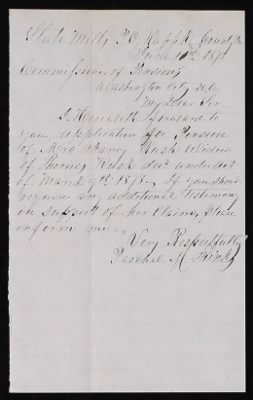 Slate Mills P.O. Rapp'k County Va
June 10th 1878
Commissioner of Pensions
Washington City
My Dear Sir
I Herewith forward to
you, application for Pension
of Mrs Nancy Rush Widow
of Thomas Rush dec'd under act
of March 9th 1878. If you should
require any additional testimony
in support of her claim, please
inform me.
Very Respectfully
Paschal M. Finks